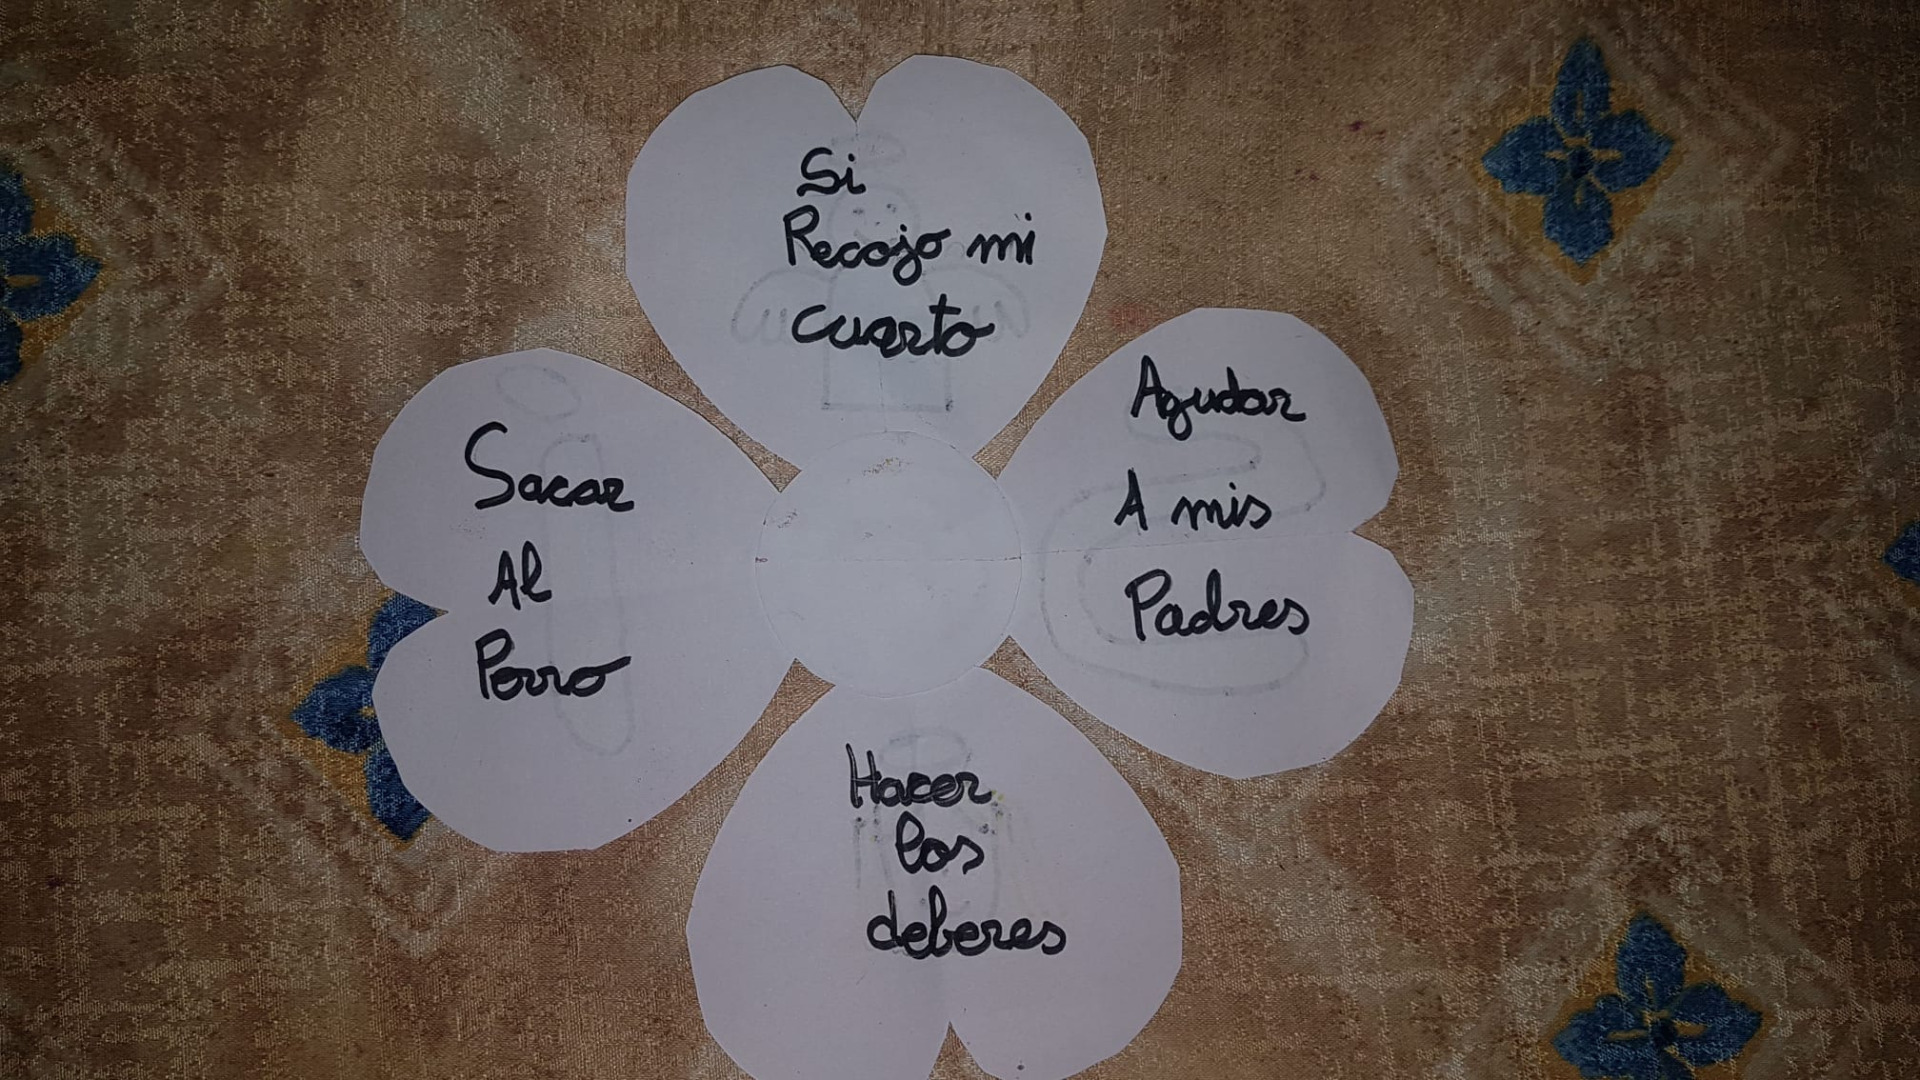 Si
Recojo mi
cuarto
Ayudar
A mis
Padres
Sacar
Al
Perro
Hacer
los
deberes